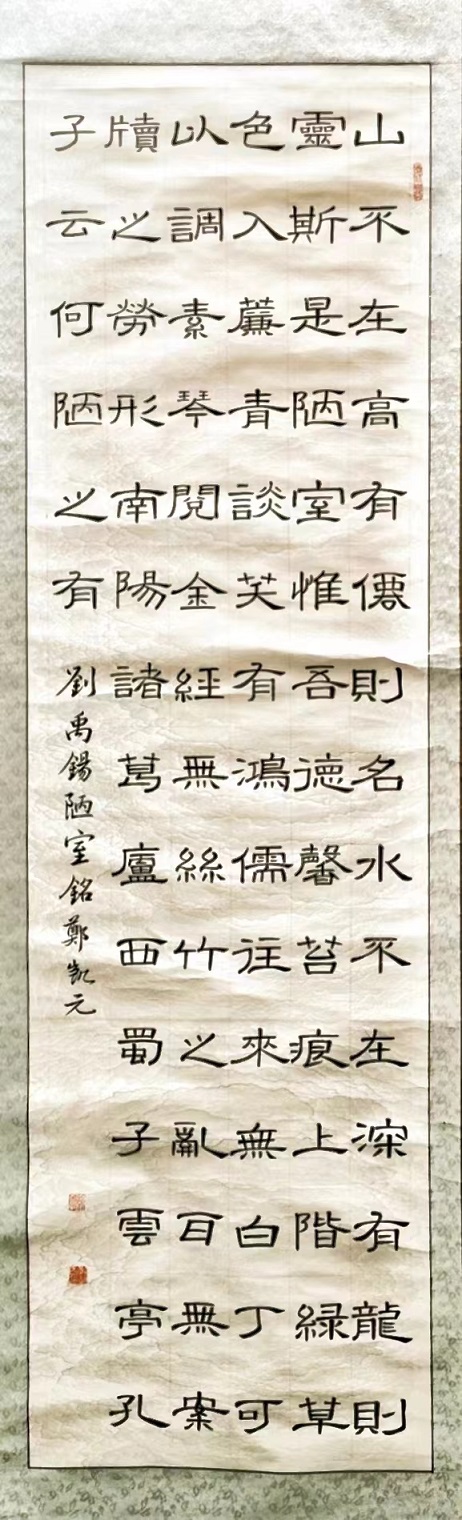 山不在高有僊則名水不在深有龍則
靈斯是陋室惟吾德馨苔痕上階緑草
色入薕青談笑有鴻儒往來無白丁可
以調素琴閱金經無絲竹之亂耳無案
牘之勞形南陽諸葛廬西蜀子雲亭孔
子云何陋之有
劉禹錫陋室銘鄭凱元